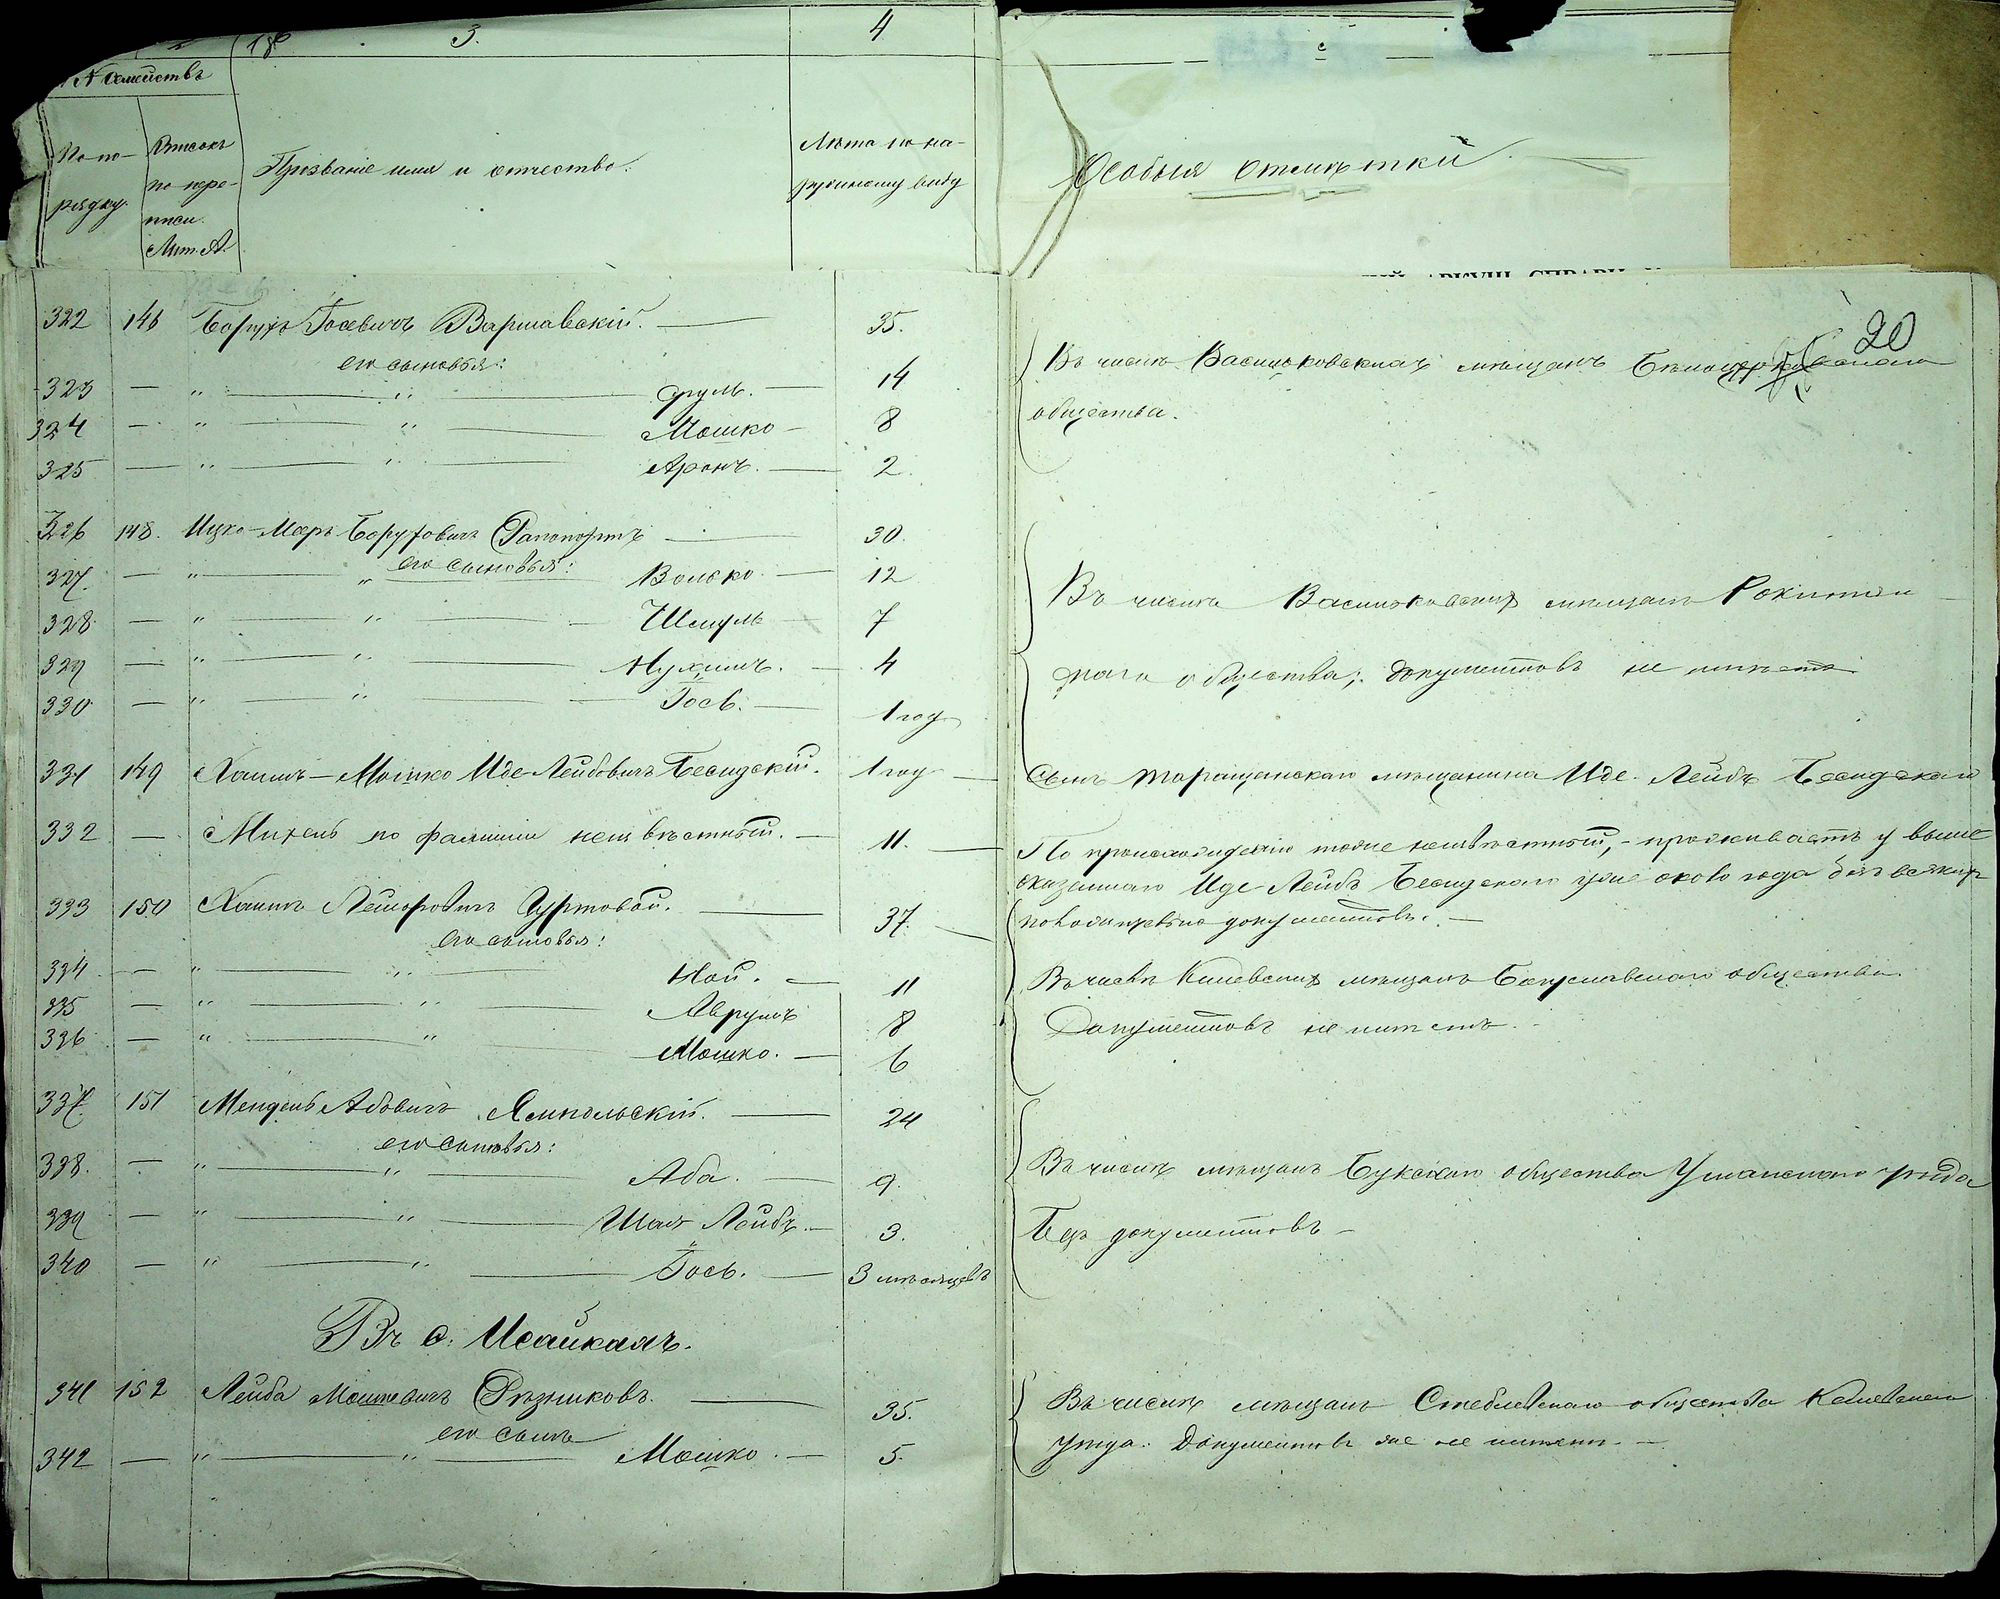 3.
4
№ Семействъ
По по-
рядку.
Списокъ
по пере-
писи.
Лит. А.
Прозваніе имя и отчество.
Лѣта по на-
ружному виду
Особыя отмѣтки
20
322 146 Борухъ Іосевичъ Варшавскій. 35.
его сыновья:
323 — " " Сруль. 14
324 — " " Мошко 8
325 — " " Аронъ. 2.
Въ числѣ Васильковскихъ мѣщанъ Бѣлоцерковскаго
общества.
326 148. Ицко-Меръ Боруховичъ Рапопортъ 30.
его сыновья:
327. — " " Волько. 12
328 — " " Шмуль 7
329 — " " Нухимъ. 4
330 — " " Іось. 1 год
Въ числѣ Васильковскихъ мѣщанъ Рокитян-
скаго общества; документовъ не имѣетъ
331 149 Хаимъ-Мошко Иде-Лейбовичъ Бесидскій. 1 год
Сынъ таращанскаго мѣщанина Иде-Лейбъ Бесидскаго
332 — Михель по фамиліи неизвѣстный. 11.
По происхожденію тоже неизвѣстный, - проживаетъ у выше
сказаннаго Иде-Лейбъ Бесидскаго уже около года безъ всякихъ
документовъ.
333 150 Хаимъ Лейзоровичъ Гуртовой. 37.
его сыновья:
334 — " " Ной. 11
335 — " " Аврумъ 8
336 — " " Мошко. 6
Въ числѣ Каневскихъ мѣщанъ Богуславскаго общества
Документовъ не имѣетъ.
337 151 Мендель Абовичъ Ямпольскій. 24
его сыновья:
338. — " " Аба. 9.
339 — " " Шая Лейбъ. 3.
340 — " " Іось. 3 мѣсяцевъ
Въ числѣ мѣщанъ Букскаго общества Уманскаго уѣзда
Безъ документовъ
Въ с. Исайкахъ.
341 152 Лейба Мошковичъ Рѣзниковъ. 35.
его сынъ
342 — " " Мошко. 5.
Въ числѣ мѣщанъ Стеблевскаго общества Каневскаго
уѣзда. Документовъ же не имѣетъ.